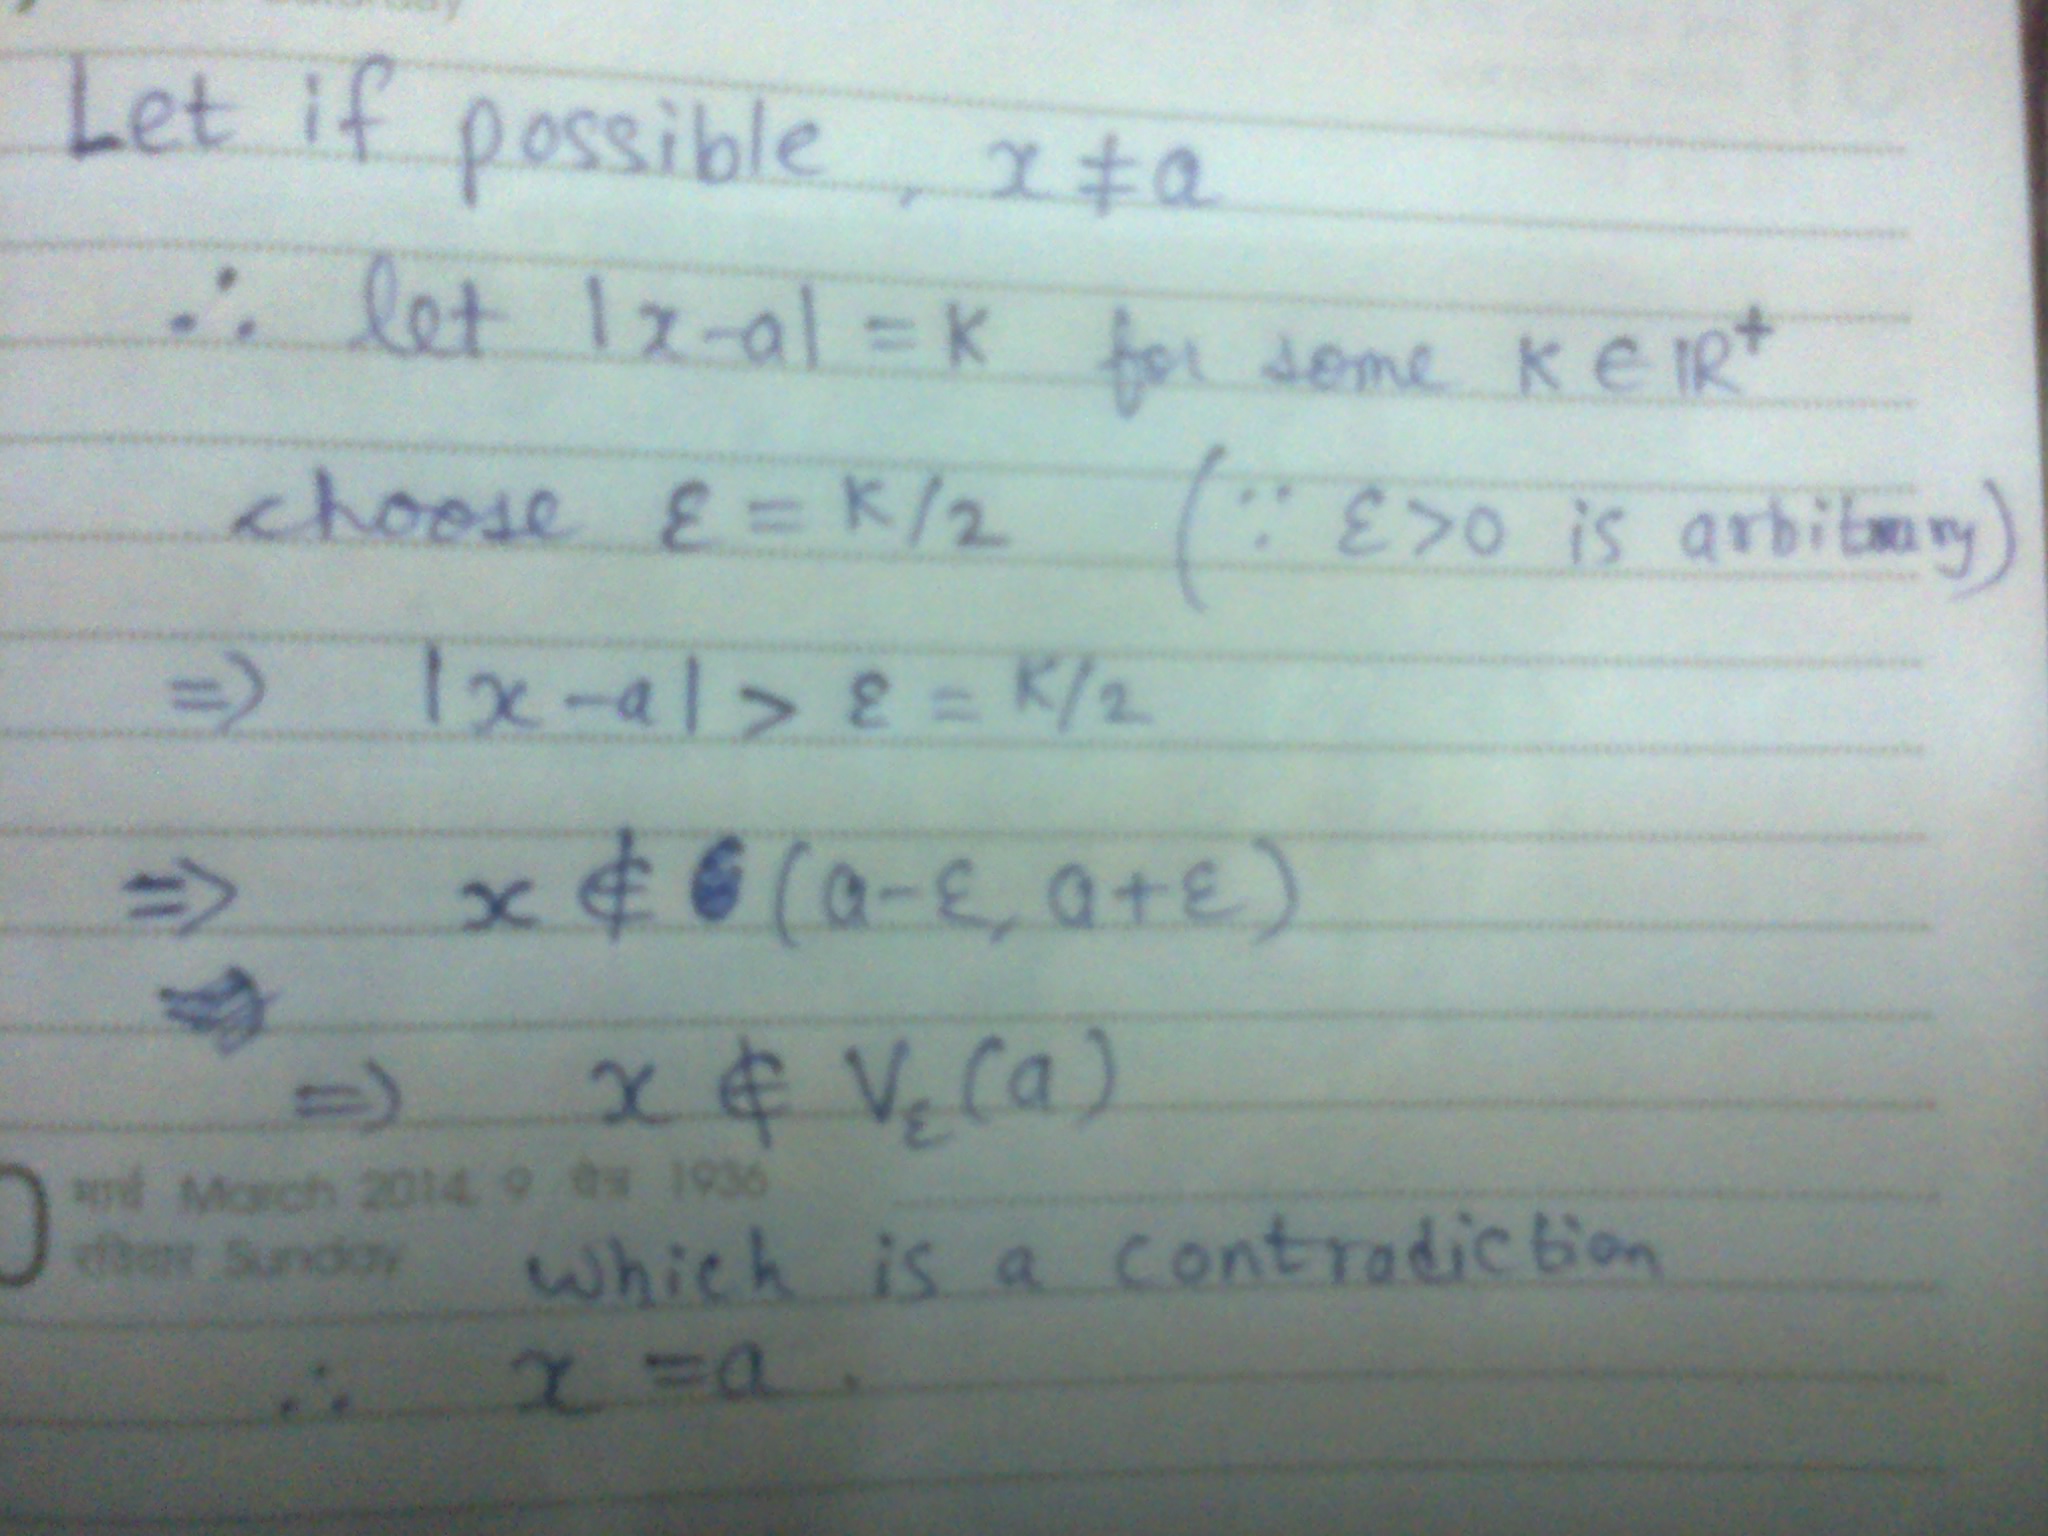 Let if possible, x ≠ a
∴ let |x-a| = K for some K ∈ IR⁺
choose ε = K/2 (∵ ε>0 is arbitrary)
=> |x-a| > ε = K/2
=> x ∉ (a-ε, a+ε)
=> x ∉ Vε(a)
मार्च March 2014 9 चैत्र 1936
रविवार Sunday
which is a contradiction
∴ x = a.